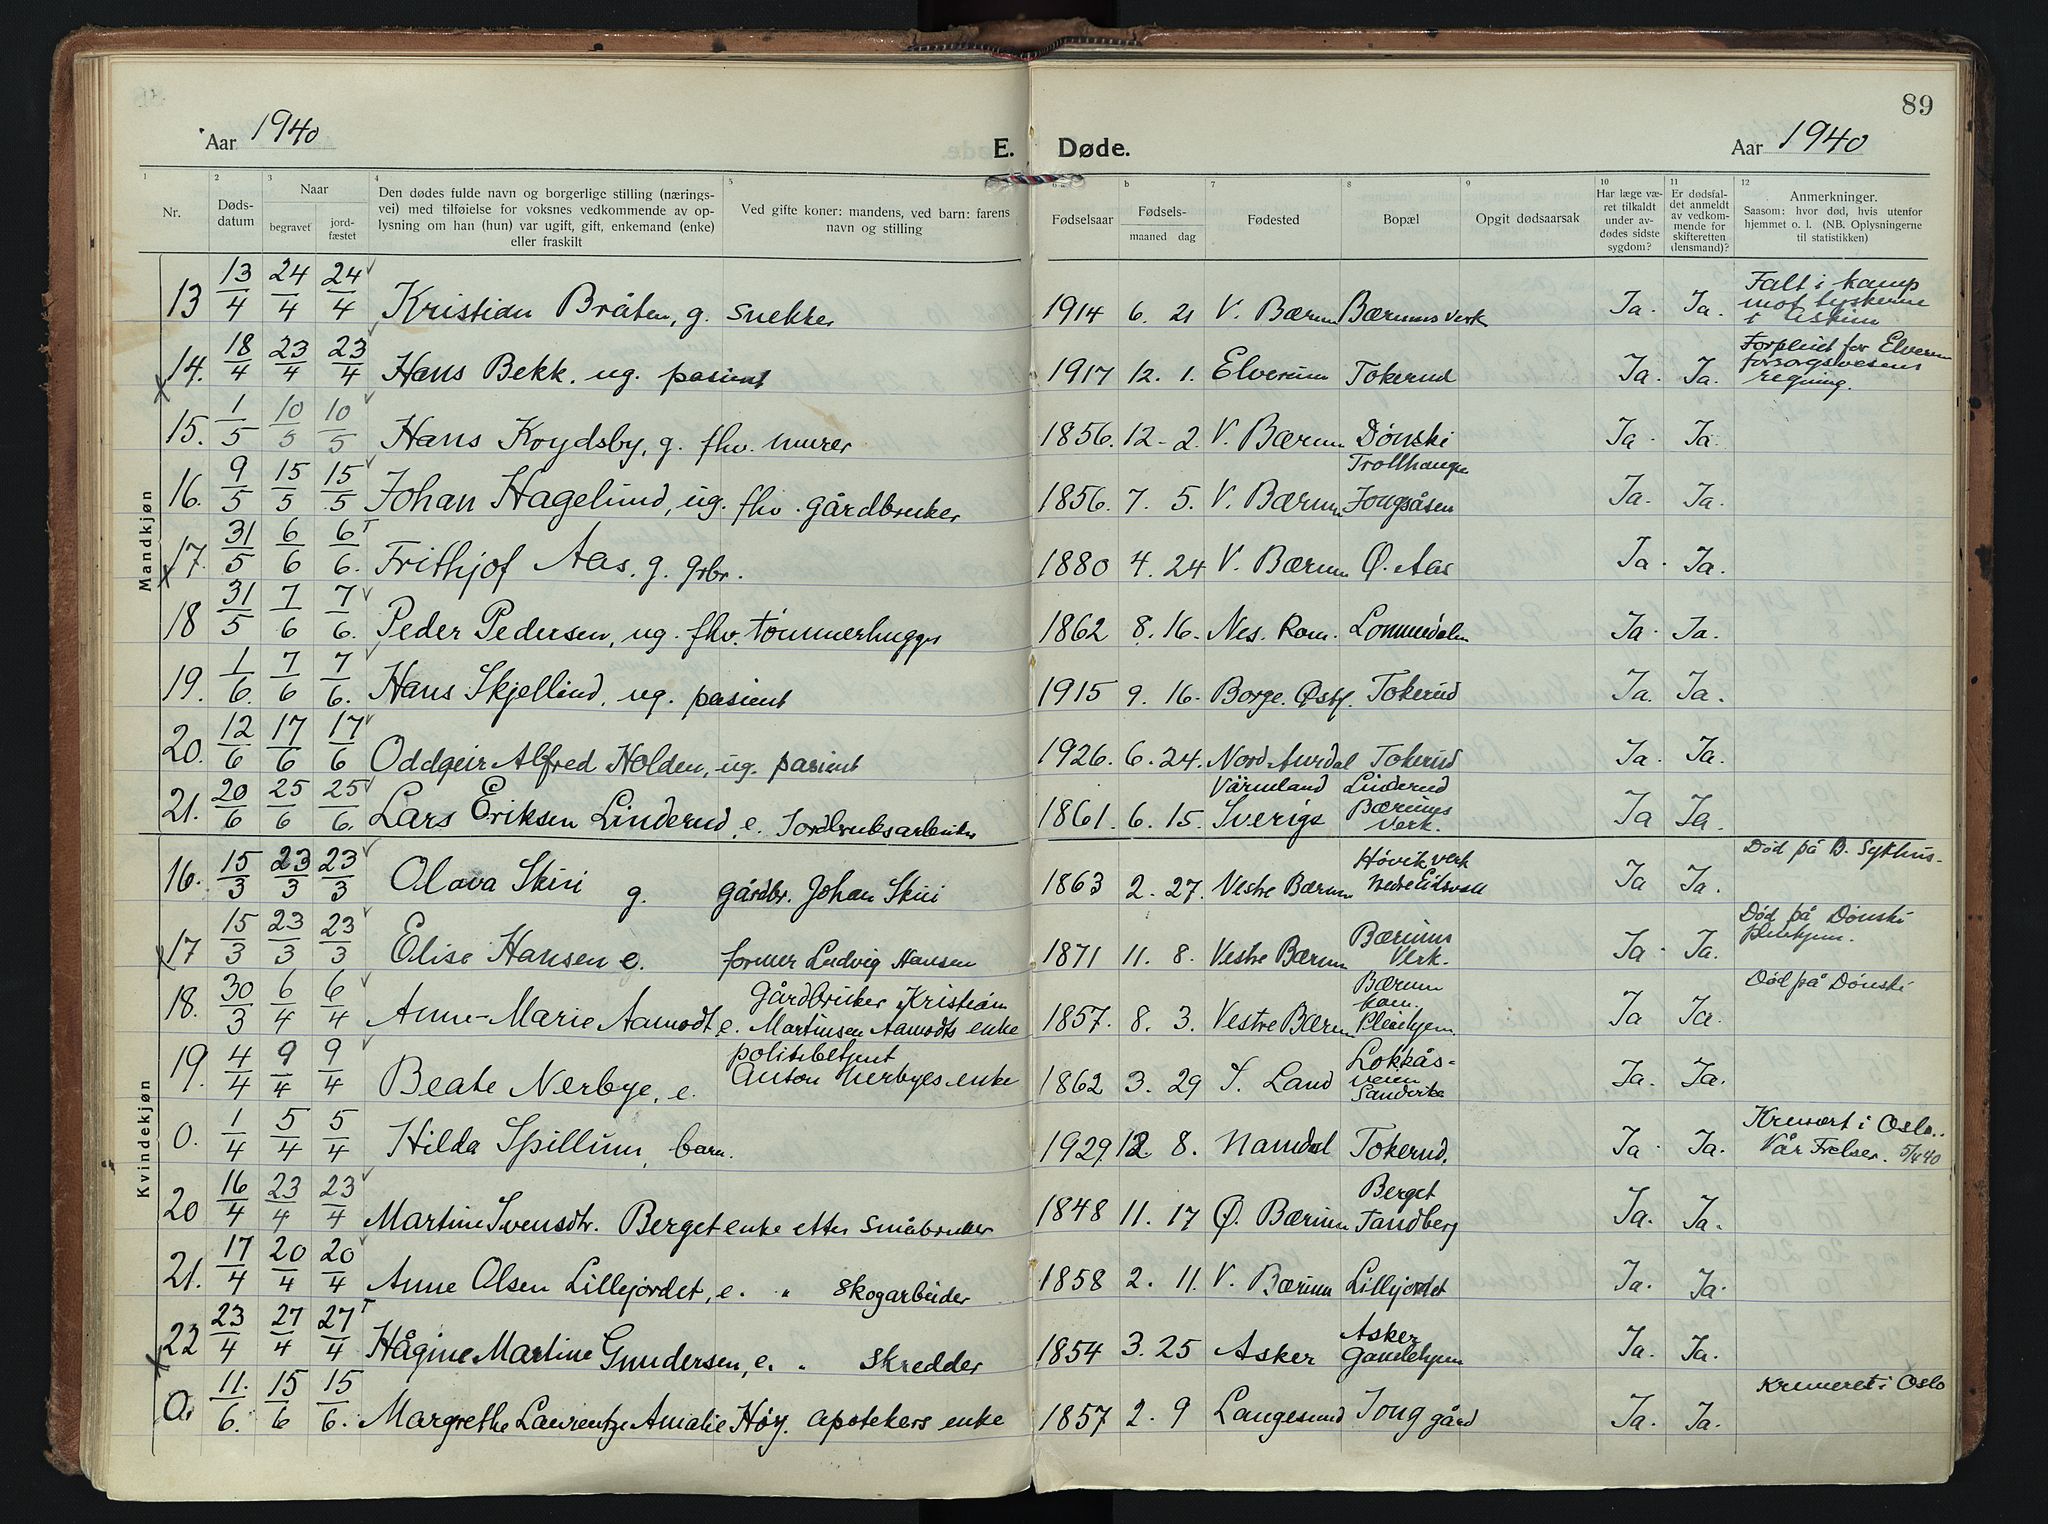 89
Aar 1940 E. Døde. Aar 1940
1 2 3 4 5 6 a b 7 8 9 10 11 12
Nr. Døds-datum Naar begravet jord-fæstet Den dødes fulde navn og borgerlige stilling (nærings-vei) med tilføielse for voksnes vedkommende av op-lysning om han (hun) var ugift, gift, enkemand (enke) eller fraskilt Ved gifte koner: mandens, ved barn: farens navn og stilling Fødselsaar Fødsels-maaned dag Fødested Bopæl Opgit dødsaarsak Har læge væ-ret tilkaldt under av-dødes sidste sygdom? Er dødsfal-det anmeldt av vedkom-mende for skifteretten (lensmand)? Anmerkninger. Saasom: hvor død, hvis utenfor hjemmet o. l. (NB. Oplysningerne til statistikken)
Mandkjøn
13 13/4 24/4 24/4 Kristian Bråten, g. snekker 1914 6. 21 V. Bærum Bærums Verk Ja. Ja. Falt i kamp mot tyskerne i Askim
14. 18/4 23/4 23/4 Hans Bekk, ug. pasient 1917 12. 1. Elverum Tokerud Ja. Ja. Forpleiet for Elverum forsorgsvesens regning.
15. 1/5 10/5 10/5 Hans Koydsby, g. fhv. murer 1856. 12 - 2. V. Bærum Dønski Ja. Ja.
16. 9/5 15/5 15/5 Johan Hagelund, ug. fhv. gårdbruker 1856. 7. 5. V. Bærum Trollhaugen Jongsåsen Ja. Ja.
17. 31/5 6/6 6/6. Frithjof Aas. g. grbr. 1880 4. 24 V. Bærum Ø. Aas Ja. Ja.
18 31/5 7/6 7/6. Peder Pedersen, ug. fhv. tømmerhugger 1862 8. 16. Nes. Rom. Lommedalen Ja. Ja.
19. 1/6. 7/6 7/6. Hans Skjellind, ug. pasient 1915 9. 16. Borge. Østf. Tokerud Ja. Ja.
20. 12/6 17/6 17/6 Oddgeir Alfred Holden, ug. pasient 1926. 6. 24. Nord Aurdal Tokerud Ja. Ja.
21. 20/6 25/6 25/6. Lars Eriksen Linderud, e. Jordbruksarbeider 1861. 6. 15. Värmland Sverige Linderud Bærums Verk. Ja Ja.
Kvindekjøn
16. 15/3 23/3 23/3 Olava Skui g. gårdbr. Johan Skui 1863 2. 27. Vestre Bærum Høvik verk nedre Eidsvoll Ja Ja. Død på B. Sykhus.
17 15/3 23/3 23/3 Elise Hansen e. former Ludvig Hansen 1871 11. 8. Vestre Bærum Bærums Verk. Ja. Ja. Død på Dønski pleiehjem.
18. 30/3 6/4 6/4 Anne-Marie Aamodt e. gårdbruker Kristian Martinsen Aamodts enke 1857. 8. 3. Vestre Bærum Bærum kom. Pleiehjem Ja Ja. Død på Dønski
19. 4/4 9/4 9/4 Beate Nerbye, e. politibetjent Anton Nerbyes enke 1862 3. 29 S. Land Løkkås-veien Sandvika Ja. Ja.
0. 1/4 5/4 5/4 Hilda Spillum, barn. 1929 12. 8. Namdal Tokerud. Ja. Ja. Kremert i Oslo. Vår Frelser. 5/4 40
20 16/4 23/4 23/4 Martine Svensdtr. Berget enke etter småbruker 1848 11. 17 Ø. Bærum Berget Tandberg Ja. Ja.
21. 17/4 20/4 20/4 Anne Olsen Lillejordet, e. " skogarbeider 1858 2. 11. V. Bærum Lillejordet Ja. Ja.
22 23/4 27/4 27/4 Hågine Martine Gundersen, e. " skredder 1854 3. 25 Asker Asker Gamlehjem Ja. Ja.
0. 11./6. 15/6 15/6. Margrethe Laurentze Amalie Høy. apotekers enke 1857 2. 9 Langesund Jong gård Ja. Ja. Kremeret i Oslo